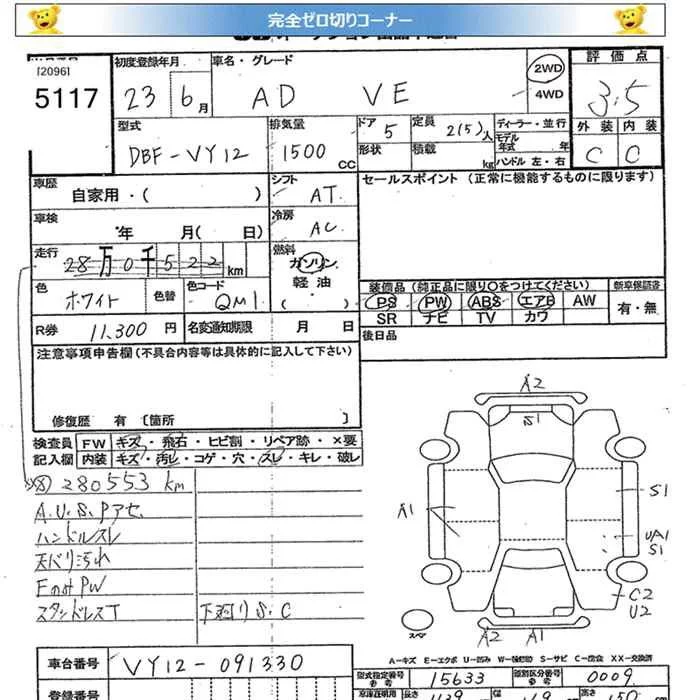 完全ゼロ切りコーナー
[2096]
5117
初度登録年月
23 6月
車名・グレード
AD VE
2WD
4WD
評価点
3.5
外装 内装
C C
型式
DBF-VY12
排気量
1500 CC
ドア 5
形状
定員 2(5)人
積載 kg
ディーラー・並行
モデル年式 年
ハンドル 左・右
車歴
自家用・( )
シフト
AT
セールスポイント (正常に機能するものに限ります)
車検
年 月( 日)
冷房
AC
走行
28万0千522km
燃料
ガソリン
軽油
( )
色
ホワイト
色替
色コード
QM1
装備品 (純正品に限り○をつけてください)
新車保証書
PS PW ABS エアB AW
SR ナビ TV カワ
有・無
R券
11,300 円
名変通知期限 月 日
後日品
注意事項申告欄 (不具合内容等は具体的に記入して下さい)
修復歴 有 〔箇所 〕
検査員 FW キズ・飛石・ヒビ割・リペア跡・×要
記入欄 内装 キズ・汚レ・コゲ・穴・スレ・キレ・破レ
280553 km
A.U.S.Pアセ
ハンドルスレ
天バリ汚れ
FのみPW
スタッドレスT
下廻りS.C
A2
S1
A1
S1
UA1
S1
C2
U2
A2
A1
スペア
A-キズ E-エクボ U-凹み W-補修跡 S-サビ C-腐食 XX-交換済
車台番号
VY12-091330
型式指定番号 参考
15633
類別区分番号 参考
0009
登録番号
長さ
439
幅
169
高さ
150